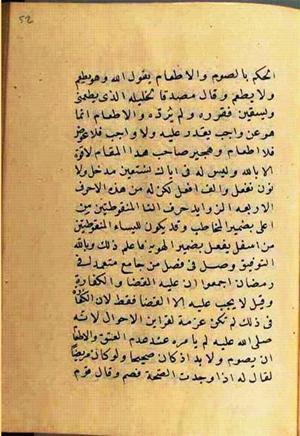 ٥٢
الحكم بالصوم والاطعام يقول الله وهو يطعم
ولا يطعم وقال مصدقا لخليله الذى يطعمنى
ويسقين فقرره ولم يردّه والاطعام انما
هو عن واجب يقدر عليه ولا واجب فلا عوض
فلا اطعام وهجير صاحب هذا المقام لا قوة
الا بالله وليس له فى اياك نستعين مدخل ولا
نون نفعل والف افعل لكن له من هذه الاحرف
الاربعة الزوايد حرف التا المنقوطتين من
اعلى بضمير المخاطب وقد يكون للياء المنقوطتين
من اسفل يفعل بضمير الهو فاعلم ذلك وبالله
التوفيق وصل فى فصل من جامع متعمدا فى
رمضان اجمعوا ان عليه القضا والكفارة
وقيل لا يجب عليه الا القضا فقط لان الكفارة
فى ذلك لم تكن عزمة لقراين الاحوال لانه
صلى الله عليه لم يامره عند عدم العتق والاطعام
ان يصوم ولا بد اذ كان صحيحا ولو كان مريضا
لقال له اذا وجدت الصحة فصم وقال قوم